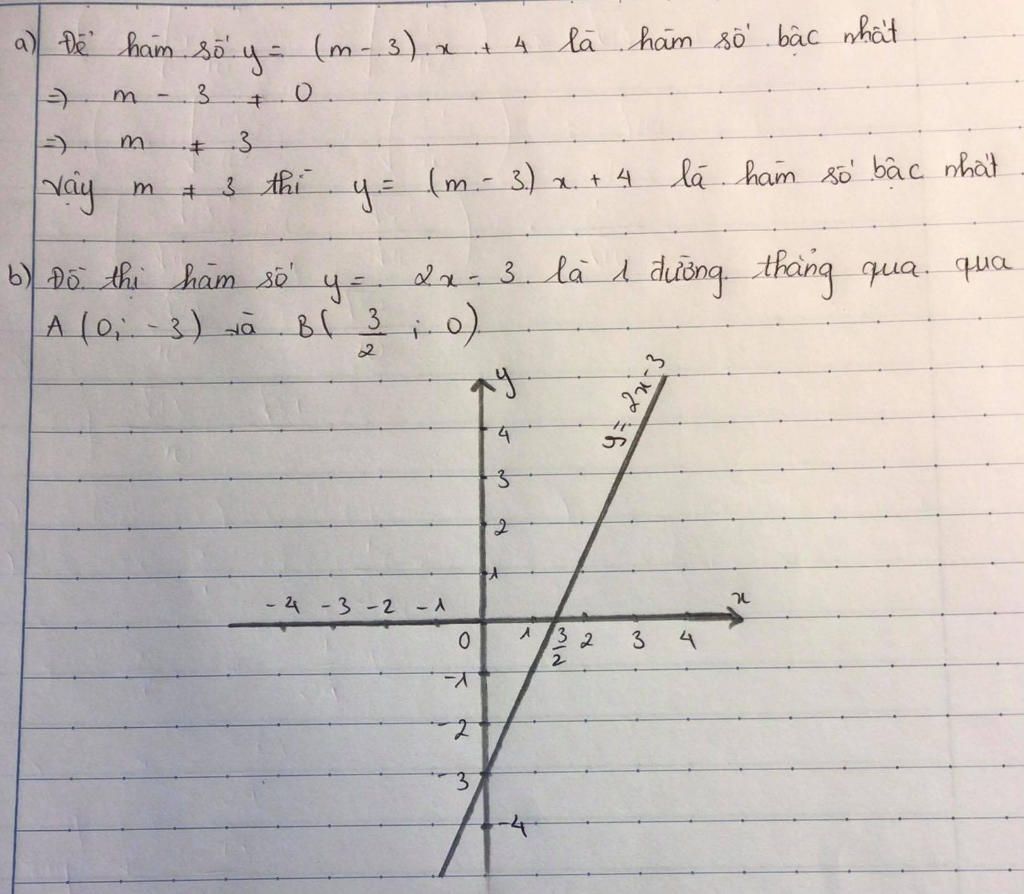 a) Để hàm số y = (m - 3) x + 4 là hàm số bậc nhất
=> m - 3 ≠ 0
=> m ≠ 3
Vậy m ≠ 3 thì y = (m - 3) x + 4 là hàm số bậc nhất
b) Đồ thị hàm số y = 2x - 3 là 1 đường thẳng qua qua
A (0; -3) và B( 3/2 ; 0)
y
y = 2x - 3
4
3
2
1
-4 -3 -2 -1
x
0 1 3/2 2 3 4
-1
-2
-3
-4